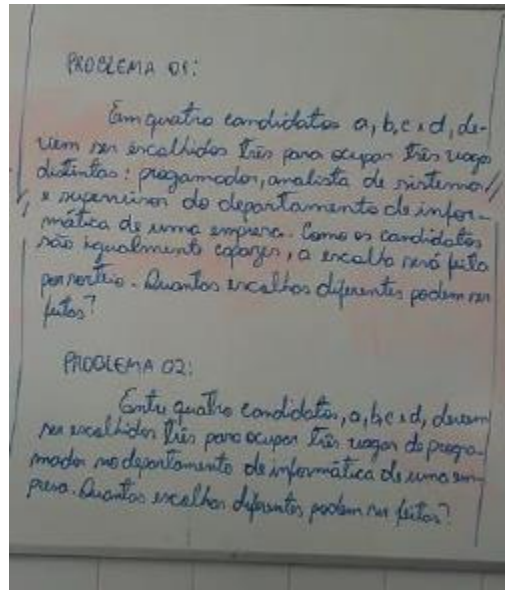 PROBLEMA 01:
Em quatro candidatos a, b, c e d, de-
vem ser escolhidos três para ocupar três vagas
distintas: progamador, analista de sistemas
e supervisor do departamento de infor-
mática de uma empresa. Como os candidatos
são igualmente capazes, a escolha será feita
por sorteio. Quantas escolhas diferentes podem ser
feitas?
PROBLEMA 02:
Entre quatro candidatos, a, b, c e d, devem
ser escolhidos três para ocupar três vagas de progra-
mador no departamento de informática de uma em-
presa. Quantas escolhas diferentes podem ser feitas?